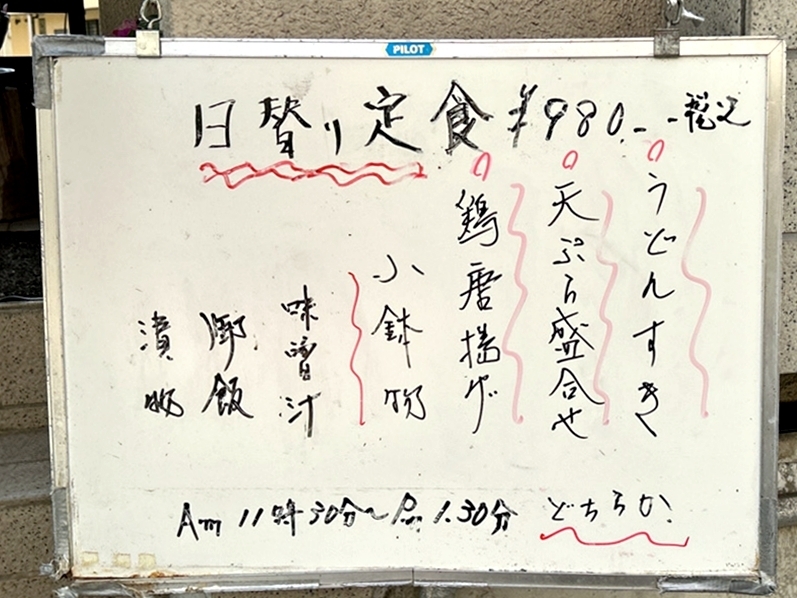 PILOT
日替り定食 ¥980.- -税込
うどんすき
天ぷら盛合せ
鶏唐揚げ
小鉢物
味噌汁
御飯
漬物
Am 11時30分~Pm 1.30分
どちらか